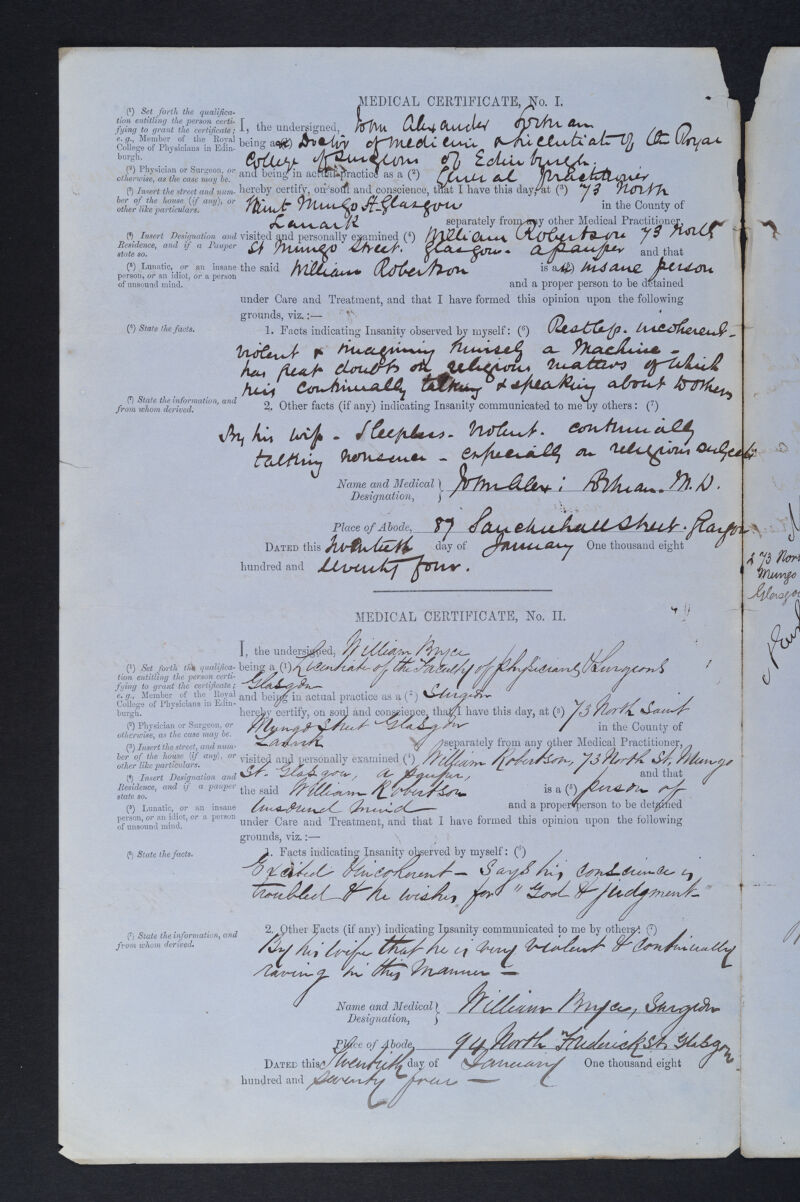 MEDICAL CERTIFICATE, No. I.
(1) Set forth the qualifica-
tion entitling the person certi-
fying to grant the certificate;
e.g., Member of the Royal
College of Physicians in Edin-
burgh.
(2) Physician or Surgeon, or
otherwise, as the case may be.
(3) Insert the street and num-
ber of the house (if any), or
other like particulars.
(4) Insert Designation and
Residence, and if a Pauper
state so.
(5) Lunatic, or an insane
person, or an idiot, or a person
of unsound mind.
I, the undersigned, John Alexander
being a (1) Doctor of Medicine & Licentiate of the Royal
College of Surgeons of Edinburgh
and being in actual practice as a (2) General Practitioner
hereby certify, on soul and conscience, that I have this day, at (3) 73 North
Saint Mungo St Glasgow in the County of
Lanark separately from any other Medical Practitioner,
visited and personally examined (4) William Robertson 73 North
St Mungo Street. Glasgow. a pauper and that
the said William Robertson is a (5) insane person
and a proper person to be detained
under Care and Treatment, and that I have formed this opinion upon the following
grounds, viz.:—
(6) State the facts.
1. Facts indicating Insanity observed by myself: (6) Restless. incoherent -
violent & imagining himself a Machine -
has great doubts on religious matters of which
he is continually talking & speaking about to others
(7) State the information, and
from whom derived.
2. Other facts (if any) indicating Insanity communicated to me by others: (7)
By his wife - Sleepless - violent - continually
talking nonsense - especially on religious subjects
Name and Medical Designation, John Alex: M.D.
Place of Abode, 87 Sauchiehall Street. Glasgow
DATED this twentieth day of January One thousand eight
hundred and seventy four.
MEDICAL CERTIFICATE, No. II.
(1) Set forth the qualifica-
tion entitling the person certi-
fying to grant the certificate;
e.g., Member of the Royal
College of Physicians in Edin-
burgh.
(2) Physician or Surgeon, or
otherwise, as the case may be.
(3) Insert the street, and num-
ber of the house (if any), or
other like particulars.
(4) Insert Designation and
Residence, and if a pauper
state so.
(5) Lunatic, or an insane
person, or an idiot, or a person
of unsound mind.
I, the undersigned, William Bryce
being a (1) Licentiate of the Faculty of Physicians & Surgeons
Glasgow
and being in actual practice as a (2) Surgeon
hereby certify, on soul and conscience, that I have this day, at (3) 73 North Saint
Mungo Street Glasgow in the County of
Lanark separately from any other Medical Practitioner,
visited and personally examined (4) William Robertson, 73 North St. Mungo
St. Glasgow, a pauper, and that
the said William Robertson is a (5) person of
unsound mind and a proper person to be detained
under Care and Treatment, and that I have formed this opinion upon the following
grounds, viz.:—
(6) State the facts.
1. Facts indicating Insanity observed by myself: (6)
Excited & incoherent - Says his conscience is
troubled & he wishes for "God & Judgment"
(7) State the information, and
from whom derived.
2. Other Facts (if any) indicating Insanity communicated to me by others: (7)
By his wife that he is very violent & continually
raving in this manner -
Name and Medical Designation, William Bryce, Surgeon
Place of Abode, 94 North Frederick St. Glasgow
DATED this Twentieth day of January One thousand eight
hundred and seventy four -
73 Nor
Mungo
Glasgo